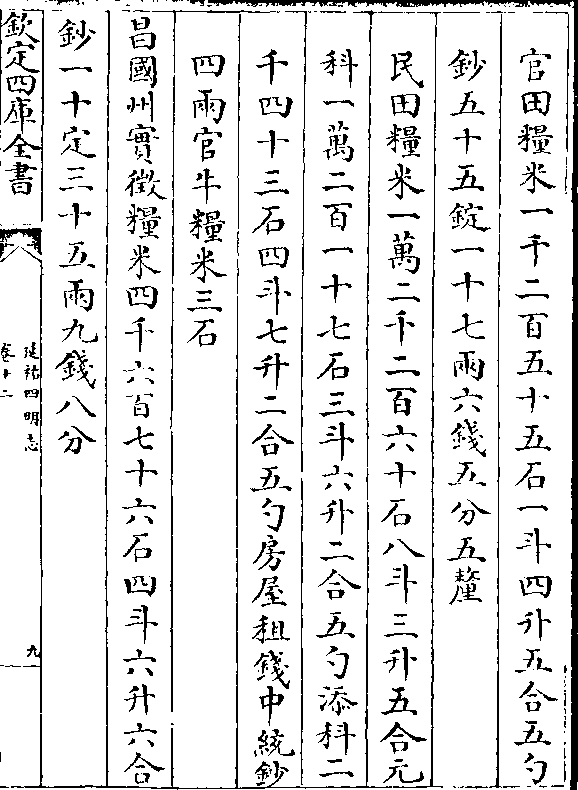 官田糧米一千二百五十五石一斗四升五合五勺
鈔五十五錠一十七兩六錢五分五釐
民田糧米一萬二千二百六十石八斗三升五合元
科一萬二百一十七石三斗六升二合五勺添科二
千四十三石四斗七升二合五勺房屋租錢中統鈔
四兩官牛糧米三石
昌國州實徵糧米四千六百七十六石四斗六升六合
鈔一十定三十五兩九錢八分
欽定四庫全書
延祐四明志
卷十二
九